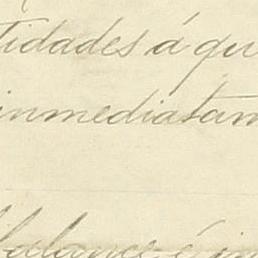 tidades á qu
inmediatam
balance é in